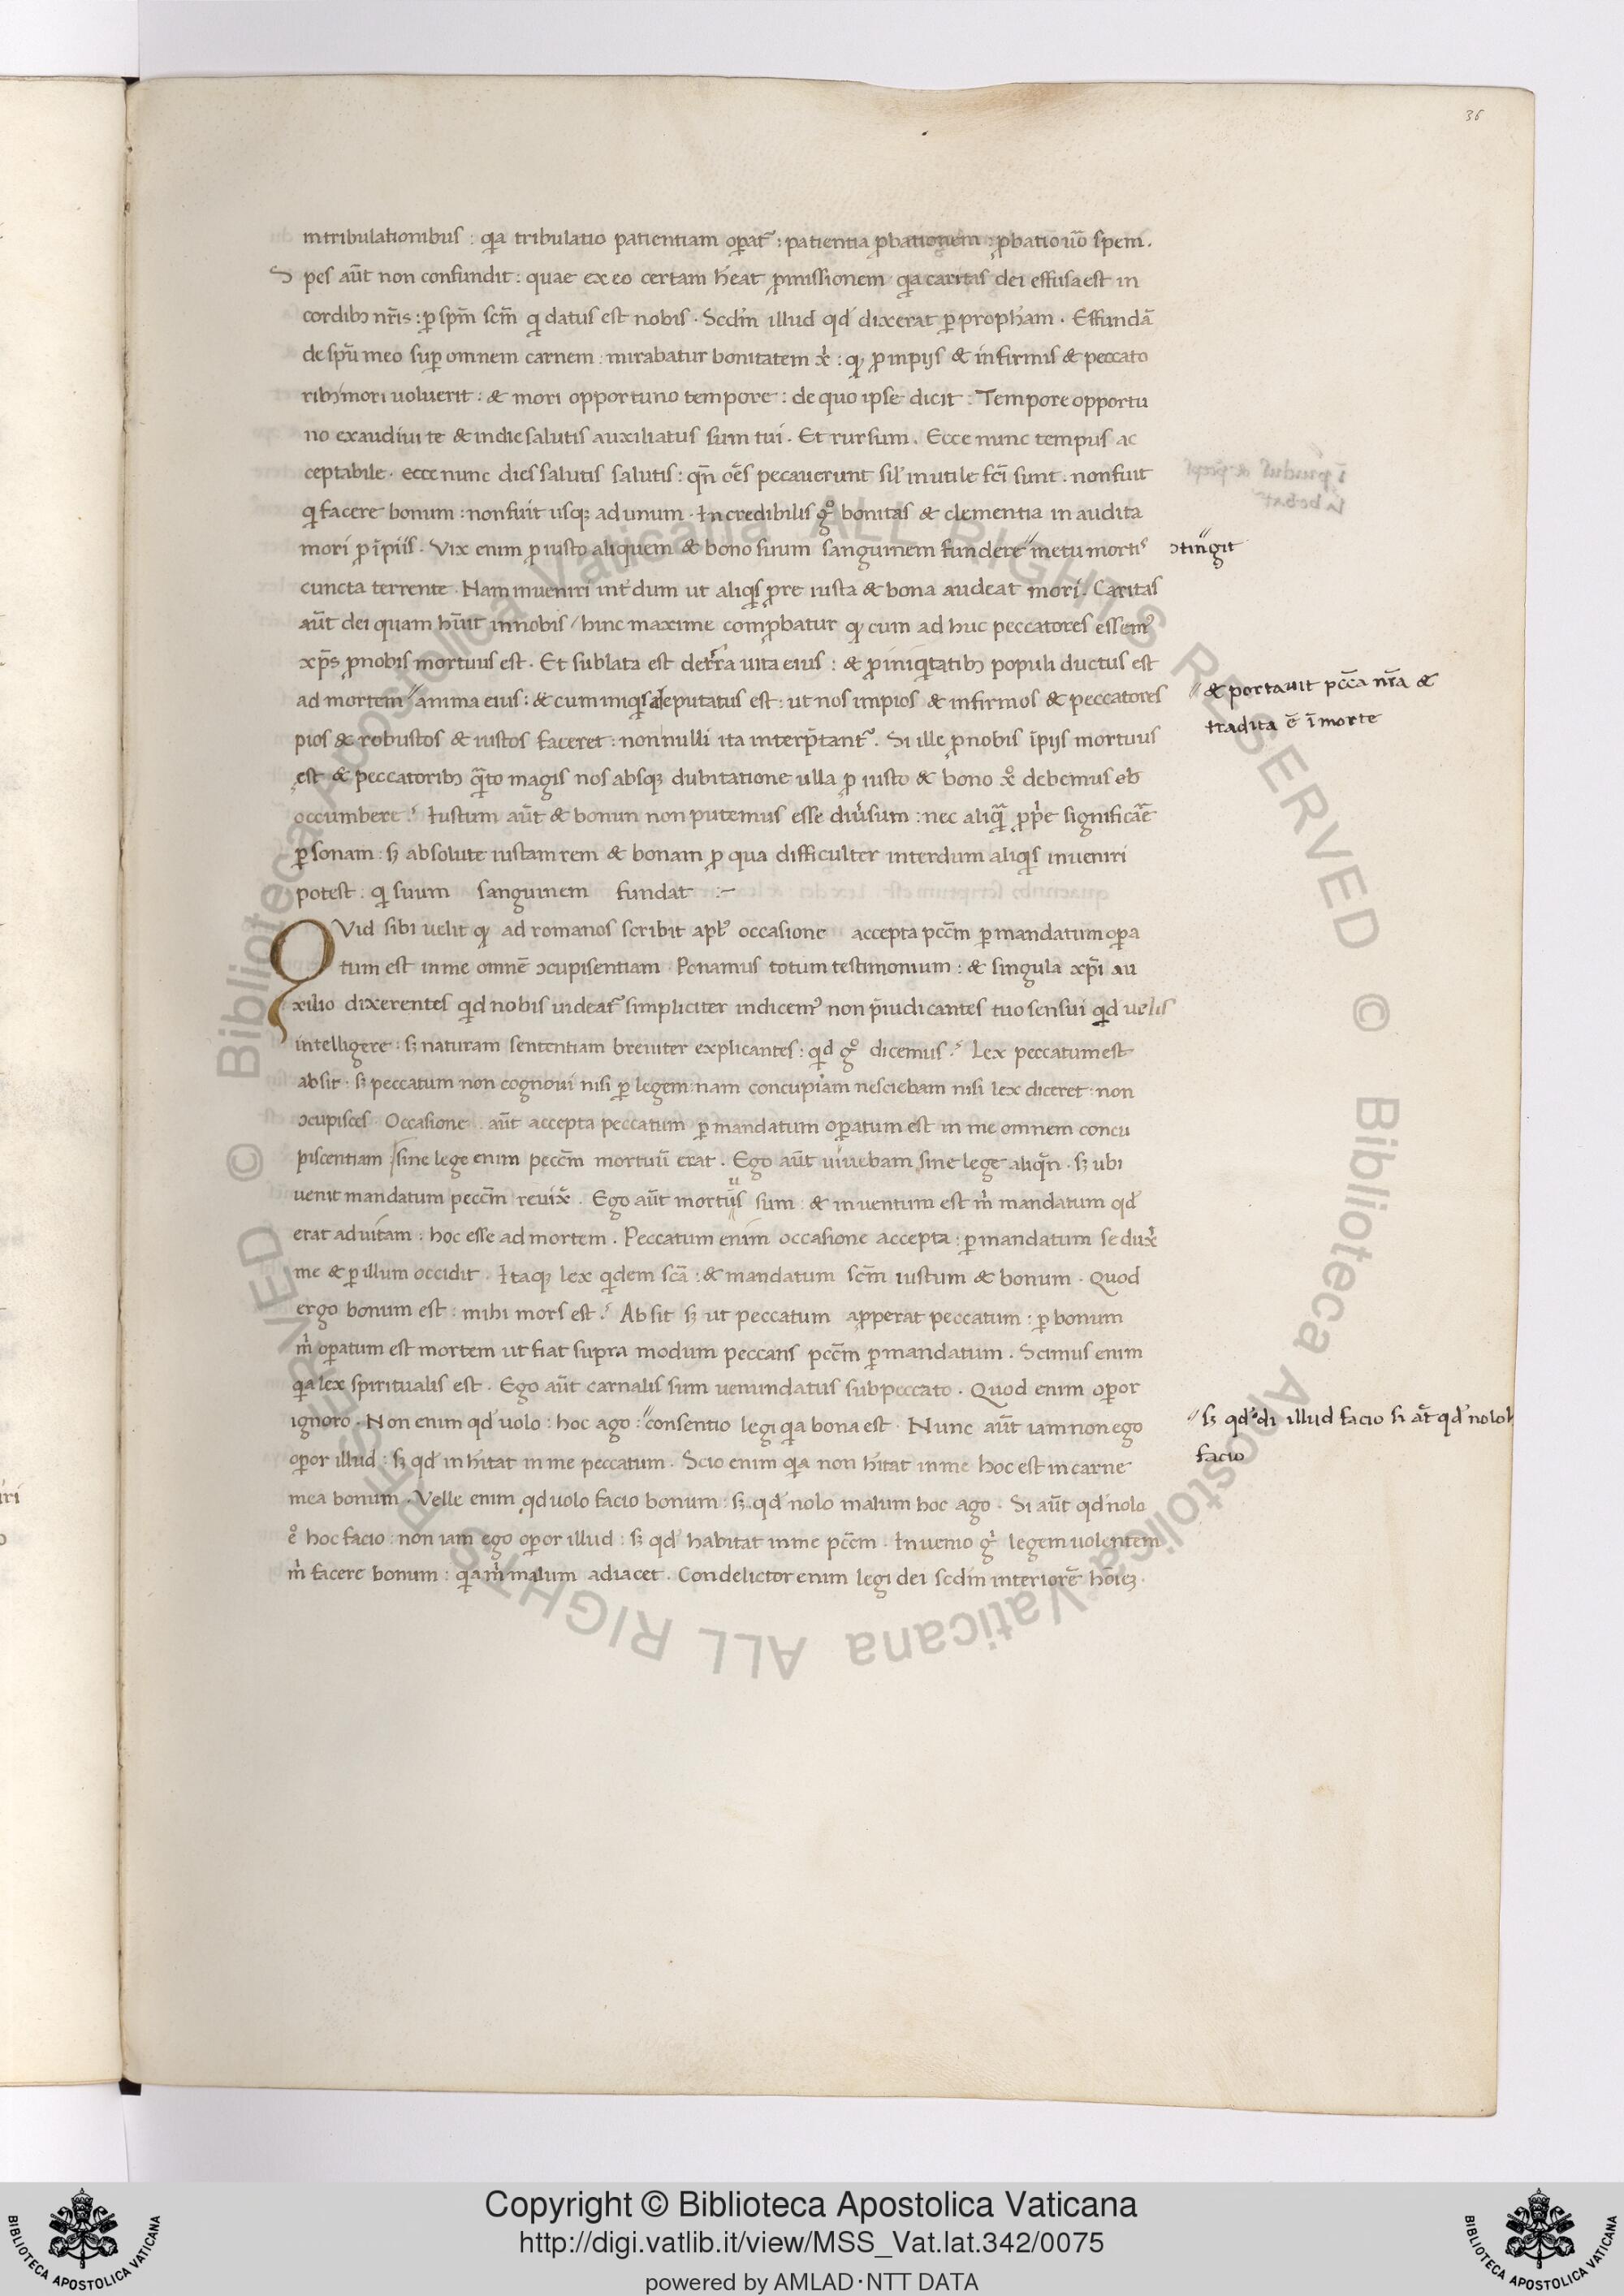 36
intribulationibus : qͥa tribulatio patientiam oꝑat᷒ : patientia ꝓbationem : ꝓbatio uō spem .
S pes aūt non confundit : quae ex eo certam h̄eat ꝓmissionem qͥa caritas dei effusa est in
cordibꝫ nr̄is : ꝑ spm̄ scm̄ qͥ datus est nobis . Scdm̄ illud qd̛ dixerat ꝑ propham̄ . Effundā
de spū meo suꝑ omnem carnem : mirabatur bonitatem xͥ : ꝙ ꝓ inpijs & infirmis & peccato
ribꝫ mori uoluerit : & mori opportuno tempore : de quo ipse dicit : Tempore opportu
no exaudiui te & indie salutis auxiliatus sum tui . Et rursum . Ecce nunc tempus ac
ceptabile . ecce nunc dies salutis salutis : qn̄ oēs pecauerunt sil̛ inutile fcī sunt . non fuit
qͥ facere bonum : non fuit usqꝫ ad unum . Incredibilis gͦ bonitas & clementia in audita
mori ꝓ īpiis . Vix enim ꝓ iusto aliquem & bono suum sanguinem fundere〃metu mortis
〃ↄtingit
cuncta terrente . Nam inueniri int̛dum ut aliqͥs ꝓ re iusta & bona audeat mori . Caritas
aūt dei quam h̄uit innobis / hinc maxime comꝓbatur ꝙ cum ad huc peccatores essem᷒
xp̄s ꝓ nobis mortuus est . Et sublata est deterra uita eius : & ꝓ iniqͥtatibꝫ populi ductus est
ad mortem〃anima eius : & cum iniqͥs deputatus est : ut nos impios & infirmos & peccatores
〃 & portauit pcc̄a nr̄a &
tradita ē ī morte
pios & robustos & iustos faceret : non nulli ita interp̄tant᷒ . Si ille ꝓ nobis īpijs mortuus
est & peccatoribꝫ qͣ̄to magis nos absqꝫ dubitatione ulla ꝓ iusto & bono xͦ debemus
occumbere . Iustum aūt & bonun non putemus esse diưsum : nec aliqͣ̄ ꝓpͥe significāē
ꝑ sonam : sꝫ absolute iustam rem & bonam ꝓ qua difficulter interdum aliqͥs inueniri
potest : qͥ suum sanguinem fundat :~
QVid sibi uelit ꝙ ad romanos scribit apl᷒ occasione accepta pccm̄ ꝑ mandatum oꝑa
tum est inme omnē ↄcupisentiam . Ponamus totum testimonium : & singula xp̄i au
xilio dixerentes qͥd nobis uideat᷒ simpliciter indicem᷒ non p̄iudicantes tuo sensui qͥd uelis
intelligere : sꝫ naturam sententiam breuiter explicantes : qͥd gͦ dicemus . Lex peccatum est
absit : sꝫ peccatum non cognoui nisi ꝑ legem : nam concupīam nesciebam nisi lex diceret : non
ↄcupisces . Occasione . aūt accepta peccatum ꝑ mandatum oꝑatum est in me omnem concu
piscentiam / sine lege enim peccm̄ mortuū erat . Ego aūt uiuebam sine lege aliqn̄ . sꝫ ubi
uenit mandatum peccm̄ reuix̛ . Ego aūt mortuus sum : & inuentum est mͥ mandatum qd̛
erat aduitam : hoc esse ad mortem . Peccatum enim occasione accepta : ꝑ mandatum sedux̛
me & ꝑ illum occidit . Itaqꝫ lex qͥdem scā : & mandatum scm̄ iustum & bonum . Quod
ergo bonum est : mihi mors est . Absit sꝫ ut peccatum apperat peccatum : ꝑ bonum
mͥ oꝑatum est mortem ut fiat supra modum peccans pccm̄ ꝑ mandatum . Scimus enim
qͥa lex spiritualis est . Ego aūt carnalis sum uenundatus sub peccato . Quod enim oꝑor
ignoro . Non enim qd̛ uolo : hoc ago : 〃consentio legi qͥa bona est . Nunc aūt iam non ego
〃 sꝫ qd̛ odi illud facio si aūt qd̛ nolo h
facio
oꝑor illud : sꝫ qd̛ in h̄itat in me peccatum . Scio enim qͥa non h̄itat inme hoc est in carne
mea bonum . Velle enim qd uolo facio bonum : sꝫ qd̛ nolo malum hoc ago . Si aūt qd̛ nolo
eͦ hoc facio : non iam ego oꝑor illud : sꝫ qd̛ habitat inme pccm̄ . Inuenio gͥ legem uolentem
mͥ facere bonum : qͥa mͥ malum adiacet . Condelictor enim legi dei scdm̄ interiorē hōieꝫ .
Copyright © Biblioteca Apostolica Vaticana
http://digi.vatlib.it/view/MSS_Vat.lat.342/0075
powered by AMLAD·NTT DATA
BIBLIOTECA APOSTOLICA VATICANA
BIBLIOTECA APOSTOLICA VATICANA
© Biblioteca Apostolica Vaticana ALL RIGHTS RESERVED © Biblioteca Apostolica Vaticana ALL RIGHTS RESERVED